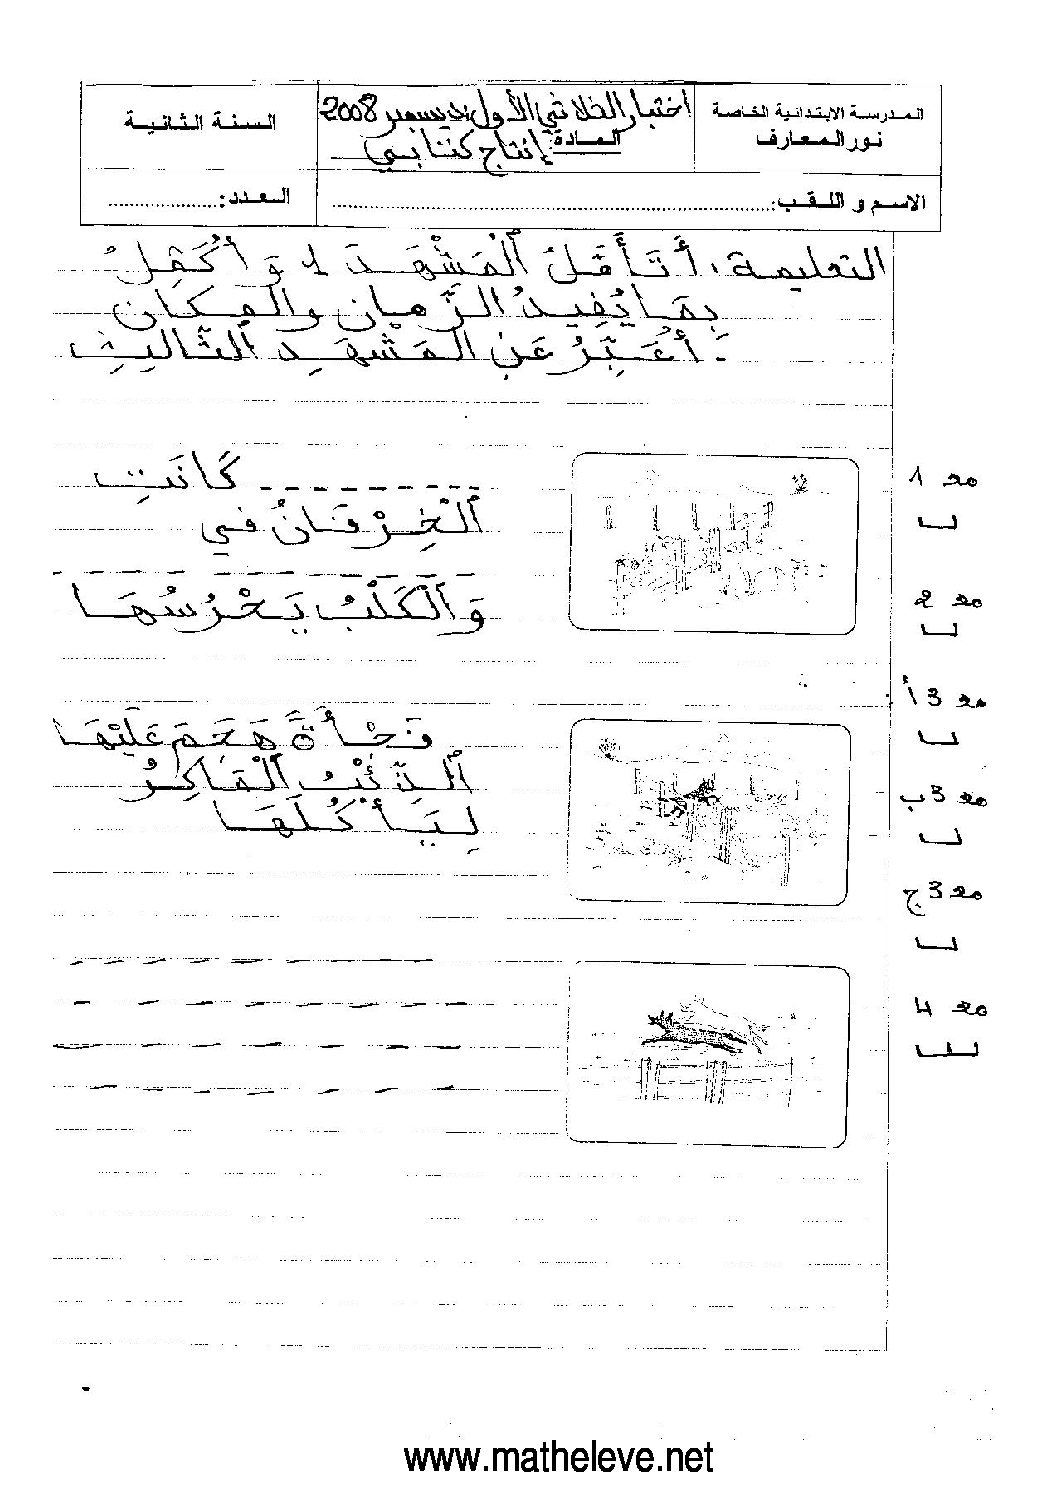 المدرسة الابتدائية الخاصة
نور المعارف
اختبار الثلاثي الأول ديسمبر 2008
المادة: إنتاج كتابي
السنة الثانية
الاسم و اللقب:........................
العدد:..................
التعليمة: أَتَأَمَّلُ ٱلْمَشْهَدَ 1 وَأُكَمِّلُ
بِمَا يُفِيدُ الزَّمَانِ والْمَكَانِ
- أُعَبِّرُ عَنِ الْمَشْهَدِ الثَّالِثِ
- - - - - - - - - كَانَتِ
ٱلْخِرْفَانُ في
- - - - - - - - -
وَٱلْكَلْبُ يَحْرُسُهَا
فَجْأَةً هَجَمَ عَلَيْهَا
ٱلذِّئْبُ ٱلْمَاكِرُ
لِيَأْكُلَهَا
- - - - - - - - -
- - - - - - - - -
- - - - - - - - -
- - - - - - - - -
مع 1
مع 2
مع 3 أ
مع 3 ب
مع 3 ج
مع 4
www.matheleve.net